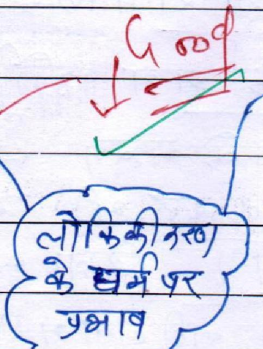 Good
लोकिकीकरण
के धर्म पर
प्रभाव